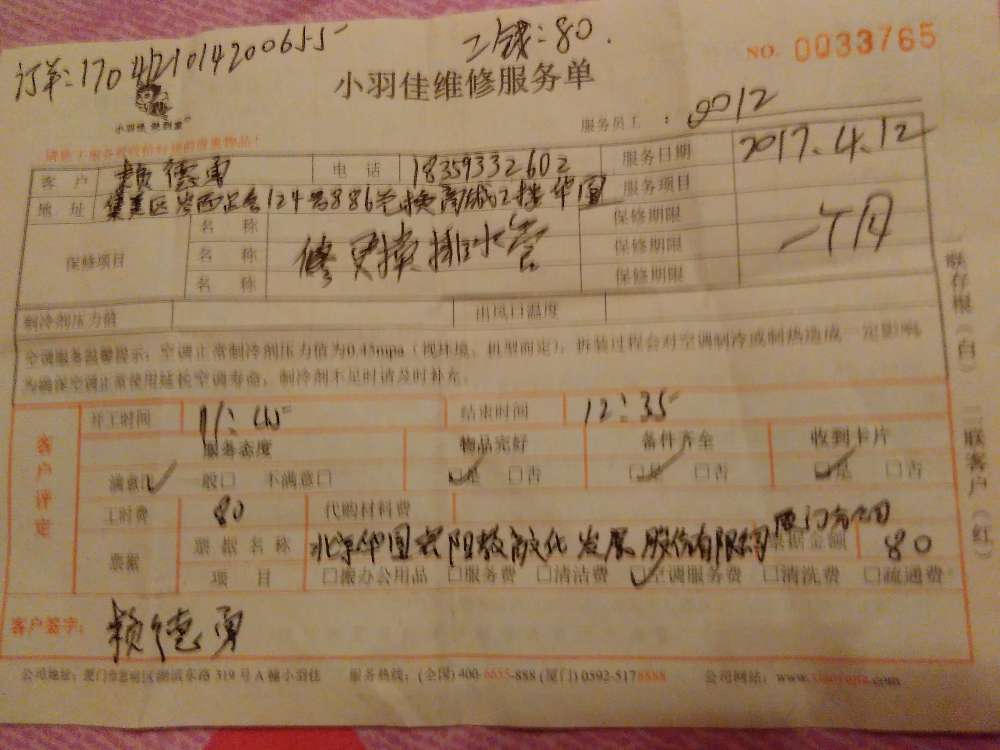 订单:17042101420065
工钱:80.
NO. 0033765
小羽佳维修服务单
小羽佳
服务员工: 9012
客户 赖德勇 电话 18359332602 服务日期 2017.4.12
地址 集美区 124号886 2楼华图 服务项目
保修项目 名称 修更换排水管 保修期限 一个月
名称 保修期限
名称 保修期限
制冷剂压力值 出风口温度
空调服务温馨提示:空调正常制冷剂压力值为0.45mpa(视环境、机型而定),拆装过程会对空调制冷或制热造成一定影响,
为确保空调正常使用延长空调寿命,制冷剂不足时请及时补充。
客户评定
开工时间 11:45 结束时间 12:35
服务态度 物品完好 备件齐全 收到卡片
满意□ 一般□ 不满意□ □是 □否 □是 □否 □是 □否
工时费 80 代购材料费
票据 票据名称 北京华图宏阳教育文化发展股份有限公司厦门分公司 票据金额 80
项目 □搬办公用品 □服务费 □清洁费 □空调服务费 □清洗费 □疏通费
客户签字: 赖德勇
一联存根(白) 二联客户(红)
公司地址:厦门市思明区湖滨东路319号A幢小羽佳 服务热线:(全国)400-6655-888(厦门)0592-5178888 公司网站:www.xiaoyujia.com